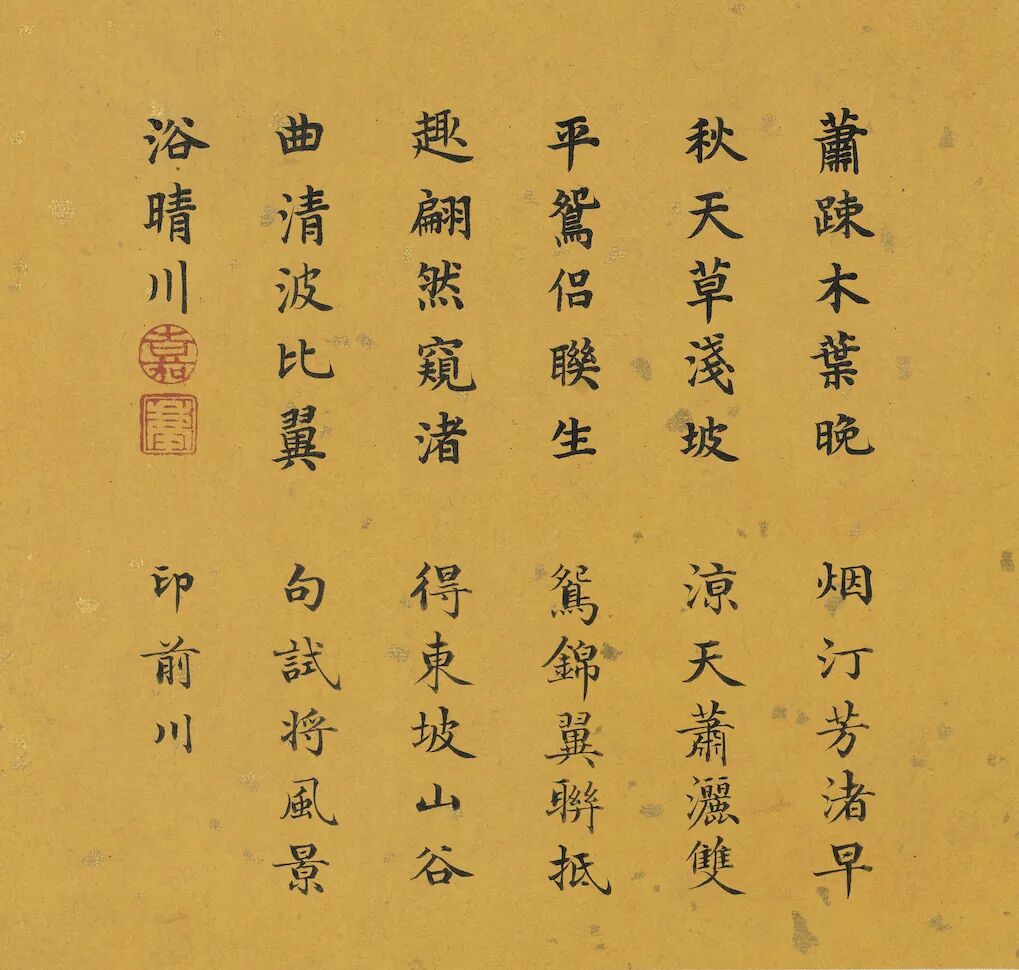 蕭踈木葉晚
秋天草淺坡
平鴛侣聨生
趣翩然窺渚
曲清波比翼
浴晴川
嘉
烟汀芳渚早
涼天蕭灑雙
鴛錦翼聯抵
得東坡山谷
句試將風景
印前川